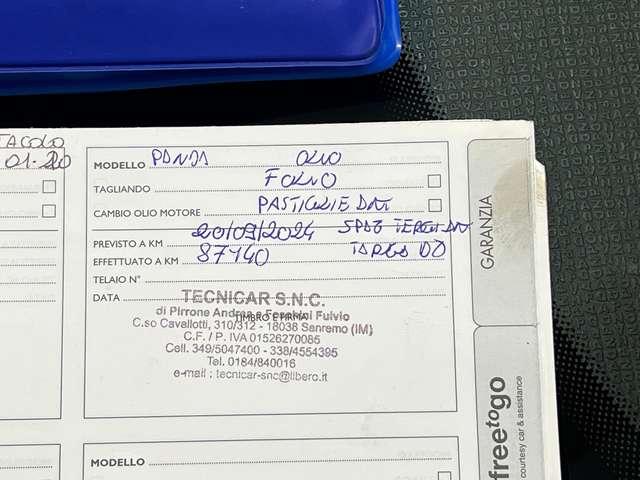 TACOLO
01-20
MODELLO PANDA OLIO
TAGLIANDO FOLIO
CAMBIO OLIO MOTORE PASTIGLIE ANT
20/09/2024 SPAZ TERGI ANT
PREVISTO A KM
EFFETTUATO A KM 87140 TARGA DD
TELAIO N°
DATA
TECNICAR S.N.C.
di Pirrone Andrea e Foschini Fulvio
TIMBRO E FIRMA
C.so Cavallotti, 310/312 - 18038 Sanremo (IM)
C.F. / P. IVA 01526270085
Cell. 349/5047400 - 338/4554395
Tel. 0184/840016
e-mail : tecnicar-snc@libero.it
MODELLO
GARANZIA
freetogo
courtesy car & assistance